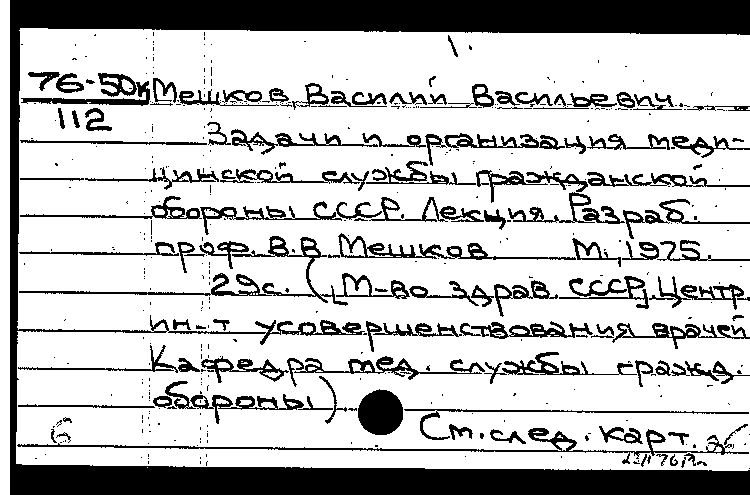 1.
76-50к Мешков, Василий Васильевич.
112
Задачи и организация меди-
цинской службы гражданской
обороны СССР. Лекция. Разраб.
проф. В.В Мешков. М., 1975.
29с. ([М-во здрав. СССР]. Центр.
ин-т усовершенствования врачей
Кафедра мед. службы гражд.
обороны)
6 См. след. карт.